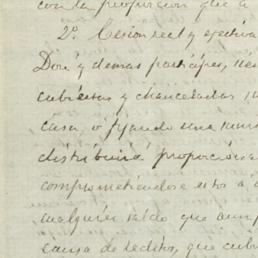 con la proporcion que a
2º Cesion real y efectiva
Doré y demas participes,
cubiertas y chanceladas
casa, ó fijando una
distribuirá proporciona
comprometiendose estos a
cualquier saldo que
causa de reditos, que cubi